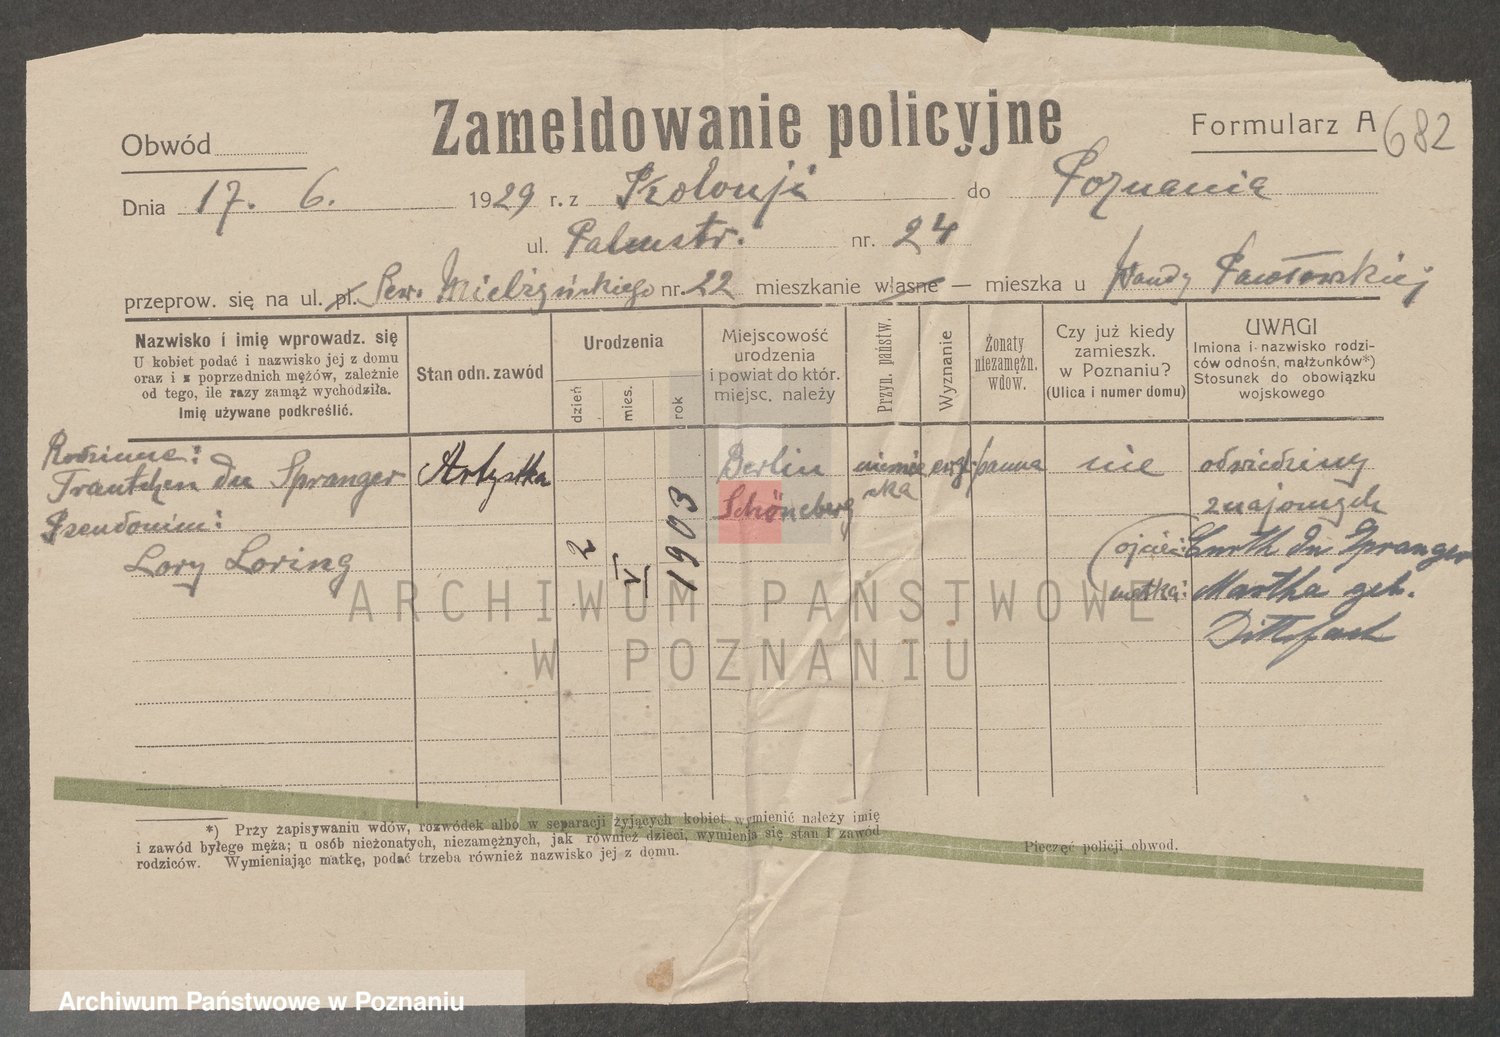 Zameldowanie policyjne
Obwód
Formularz A 682
Dnia 17. 6. 1929 r. z Kolonji do Poznania
ul. Palmstr. nr. 24
przeprow. się na ul. pl. Sew. Mielżyńskiego nr. 22 mieszkanie własne — mieszka u Wandy Pawłowskiej
Nazwisko i imię wprowadz. się
U kobiet podać i nazwisko jej z domu
oraz i z poprzednich mężów, zależnie
od tego, ile razy zamąż wychodziła.
Imię używane podkreślić.
Stan odn. zawód
Urodzenia
dzień
mies.
rok
Miejscowość
urodzenia
i powiat do któr.
miejsc. należy
Przyn. państw.
Wyznanie
Żonaty
niezamężn.
wdow.
Czy już kiedy
zamieszk.
w Poznaniu?
(Ulica i numer domu)
UWAGI
Imiona i nazwisko rodzi-
ców odnośn. małżonków*)
Stosunek do obowiązku
wojskowego
Rodzinne:
Trautchen du Spranger
Pseudonim:
Lory Loring
Artystka
2
V
1903
Berlin
Schöneberg
niemie
cka
ewg.
panna
nie
odwiedziny
znajomych
ojciec: Curth du Spranger
matka: Martha geb.
ARCHIWUM PAŃSTWOWE
W POZNANIU
*) Przy zapisywaniu wdów, rozwódek albo w separacji żyjących kobiet wymienić należy imię
i zawód byłego męża; u osób nieżonatych, niezamężnych, jak również dzieci, wymienia się stan i zawód
rodziców. Wymieniając matkę, podać trzeba również nazwisko jej z domu.
Pieczęć policji obwod.
Archiwum Państwowe w Poznaniu